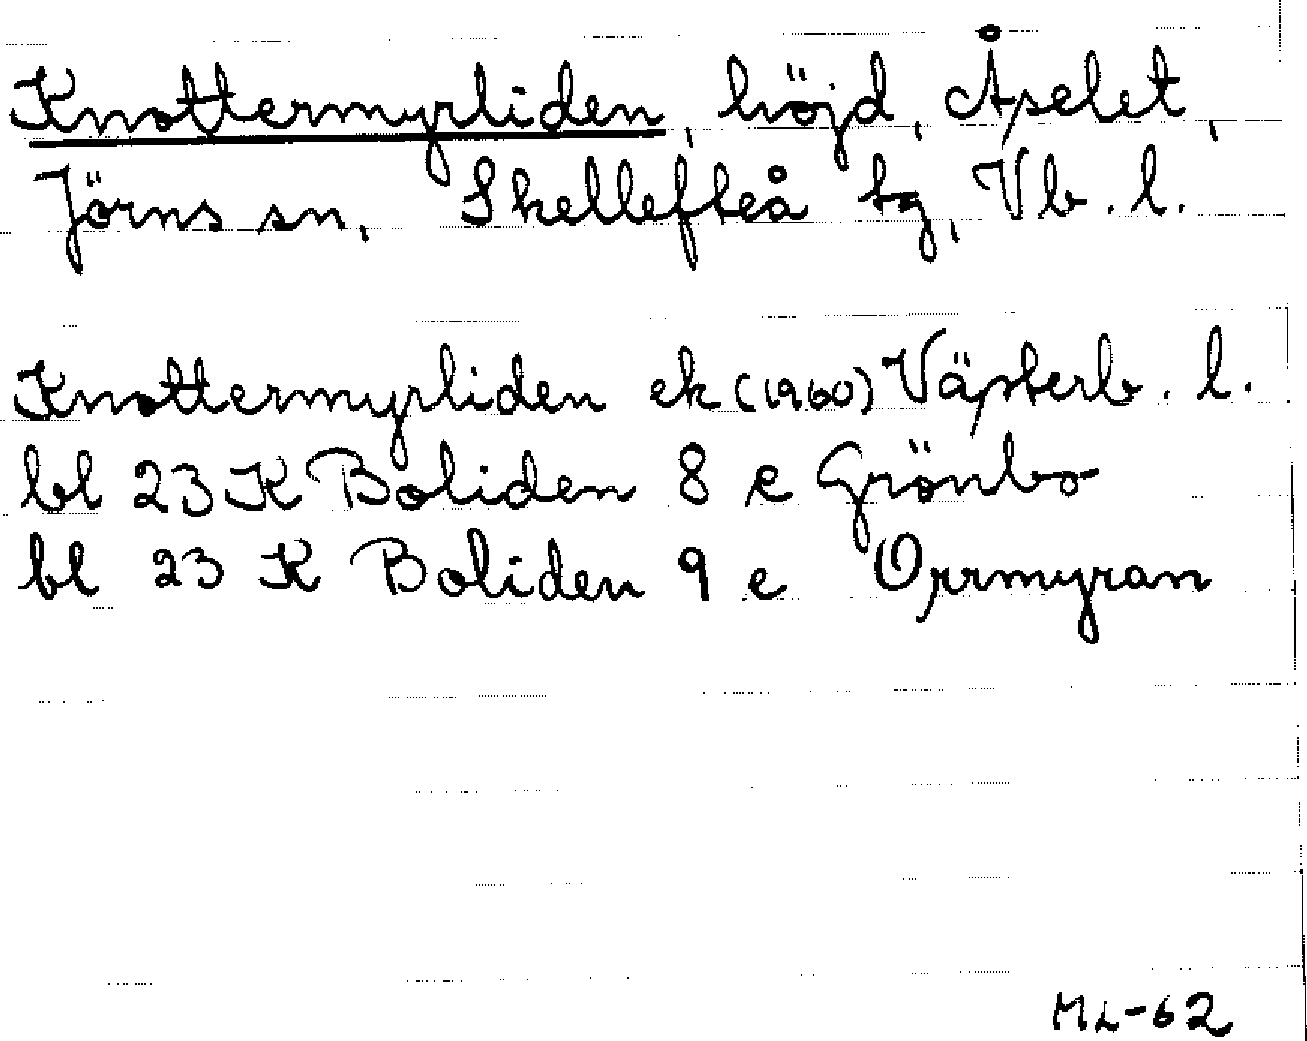 Knottermyrliden, höjd, Åselet,
Jörns sn, Skellefteå tg, Vb. l.
Knottermyrliden ek (1960) Västerb. l.
bl 23 K Boliden 8 e Grönbo
bl 23 K Boliden 9 e Orrmyran
ML-62